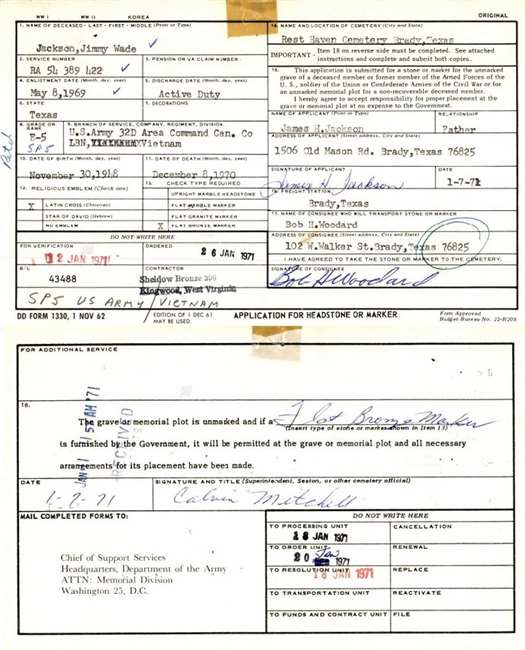 WW I WW II KOREA ORIGINAL
1. NAME OF DECEASED - LAST - FIRST - MIDDLE (Print or Type)
Jackson, Jimmy Wade
2. SERVICE NUMBER
RA 54 389 422
3. PENSION OR VA CLAIM NUMBER
4. ENLISTMENT DATE (Month, day, year)
May 8,1969
5. DISCHARGE DATE (Month, day, year)
Active Duty
6. STATE
Texas
7. DECORATIONS
8. GRADE OR RANK
E-5
SP5
9. BRANCH OF SERVICE, COMPANY, REGIMENT, DIVISION
U.S.Army 32D Area Command Cen. Co
Vietnam
10. DATE OF BIRTH (Month, day, year)
November 30,1948
11. DATE OF DEATH (Month, day, year)
December 8,1970
12. RELIGIOUS EMBLEM (Check one)
X LATIN CROSS (Christian)
STAR OF DAVID (Hebrew)
NO EMBLEM
13. CHECK TYPE REQUIRED
UPRIGHT MARBLE HEADSTONE
FLAT MARBLE MARKER
FLAT GRANITE MARKER
X FLAT BRONZE MARKER
DO NOT WRITE HERE
FOR VERIFICATION
12 JAN 1971
ORDERED
26 JAN 1971
B/L
43488
CONTRACTOR
Sheidow Bronze
Kingwood, West Virginia
SP5 US ARMY / VIETNAM
14. NAME AND LOCATION OF CEMETERY (City and State)
Rest Haven Cemetery Brady,Texas
IMPORTANT - Item 18 on reverse side must be completed. See attached instructions and complete and submit both copies.
15. This application is submitted for a stone or marker for the unmarked
grave of a deceased member or former member of the Armed Forces of the
U. S., soldier of the Union or Confederate Armies of the Civil War or for
an unmarked memorial plot for a non-recoverable deceased member.
I hereby agree to accept responsibility for proper placement at the
grave or memorial plot at no expense to the Government.
NAME OF APPLICANT (Print or Type) RELATIONSHIP
James H.Jackson Father
ADDRESS OF APPLICANT (Street address, City and State)
1506 Old Mason Rd. Brady,Texas 76825
SIGNATURE OF APPLICANT DATE
James H Jackson 1-7-71
16. FREIGHT STATION
Brady,Texas
17. NAME OF CONSIGNEE WHO WILL TRANSPORT STONE OR MARKER
Bob H.Woodard
ADDRESS OF CONSIGNEE (Street address, City and State)
102 W.Walker St.Brady,Texas 76825
I HAVE AGREED TO TAKE THE STONE OR MARKER TO THE CEMETERY.
SIGNATURE OF CONSIGNEE
Bob H Woodard
DD FORM 1330, 1 NOV 62
EDITION OF 1 DEC 61
MAY BE USED.
APPLICATION FOR HEADSTONE OR MARKER
Form Approved
Budget Bureau No. 22-R208
FOR ADDITIONAL SERVICE
JAN 11 11 51 AM '71
RECEIVED
18.
The grave or memorial plot is unmarked and if a Flat Bronze Marker
(Insert type of stone or marker shown in Item 13)
is furnished by the Government, it will be permitted at the grave or memorial plot and all necessary
arrangements for its placement have been made.
DATE
1-7-71
SIGNATURE AND TITLE (Superintendent, Sexton, or other cemetery official)
Calvin Mitchell
MAIL COMPLETED FORMS TO:
Chief of Support Services
Headquarters, Department of the Army
ATTN: Memorial Division
Washington 25, D.C.
DO NOT WRITE HERE
TO PROCESSING UNIT CANCELLATION
18 JAN 1971
TO ORDER UNIT RENEWAL
20 Jan 1971
TO RESOLUTION UNIT REPLACE
18 JAN 1971
TO TRANSPORTATION UNIT REACTIVATE
TO FUNDS AND CONTRACT UNIT FILE